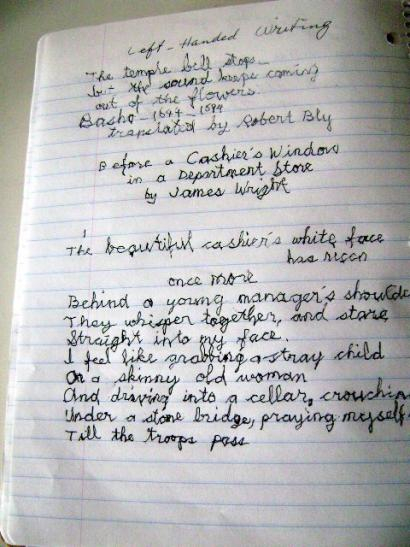 Left-Handed Writing
The temple bell stops-
but the sound keeps coming
out of the flowers.
Basho-1644-1694
translated by Robert Bly
Before a Cashier's Window
in a Department Store
by James Wright
1
The beautiful cashier's white face
has risen
once more
Behind a young manager's shoulde
They whisper together, and stare
Straight into my face.
I feel like grabbing a stray child
Or a skinny old woman
And driving into a cellar, crouching
Under a stone bridge, praying myself
Till the troops pass